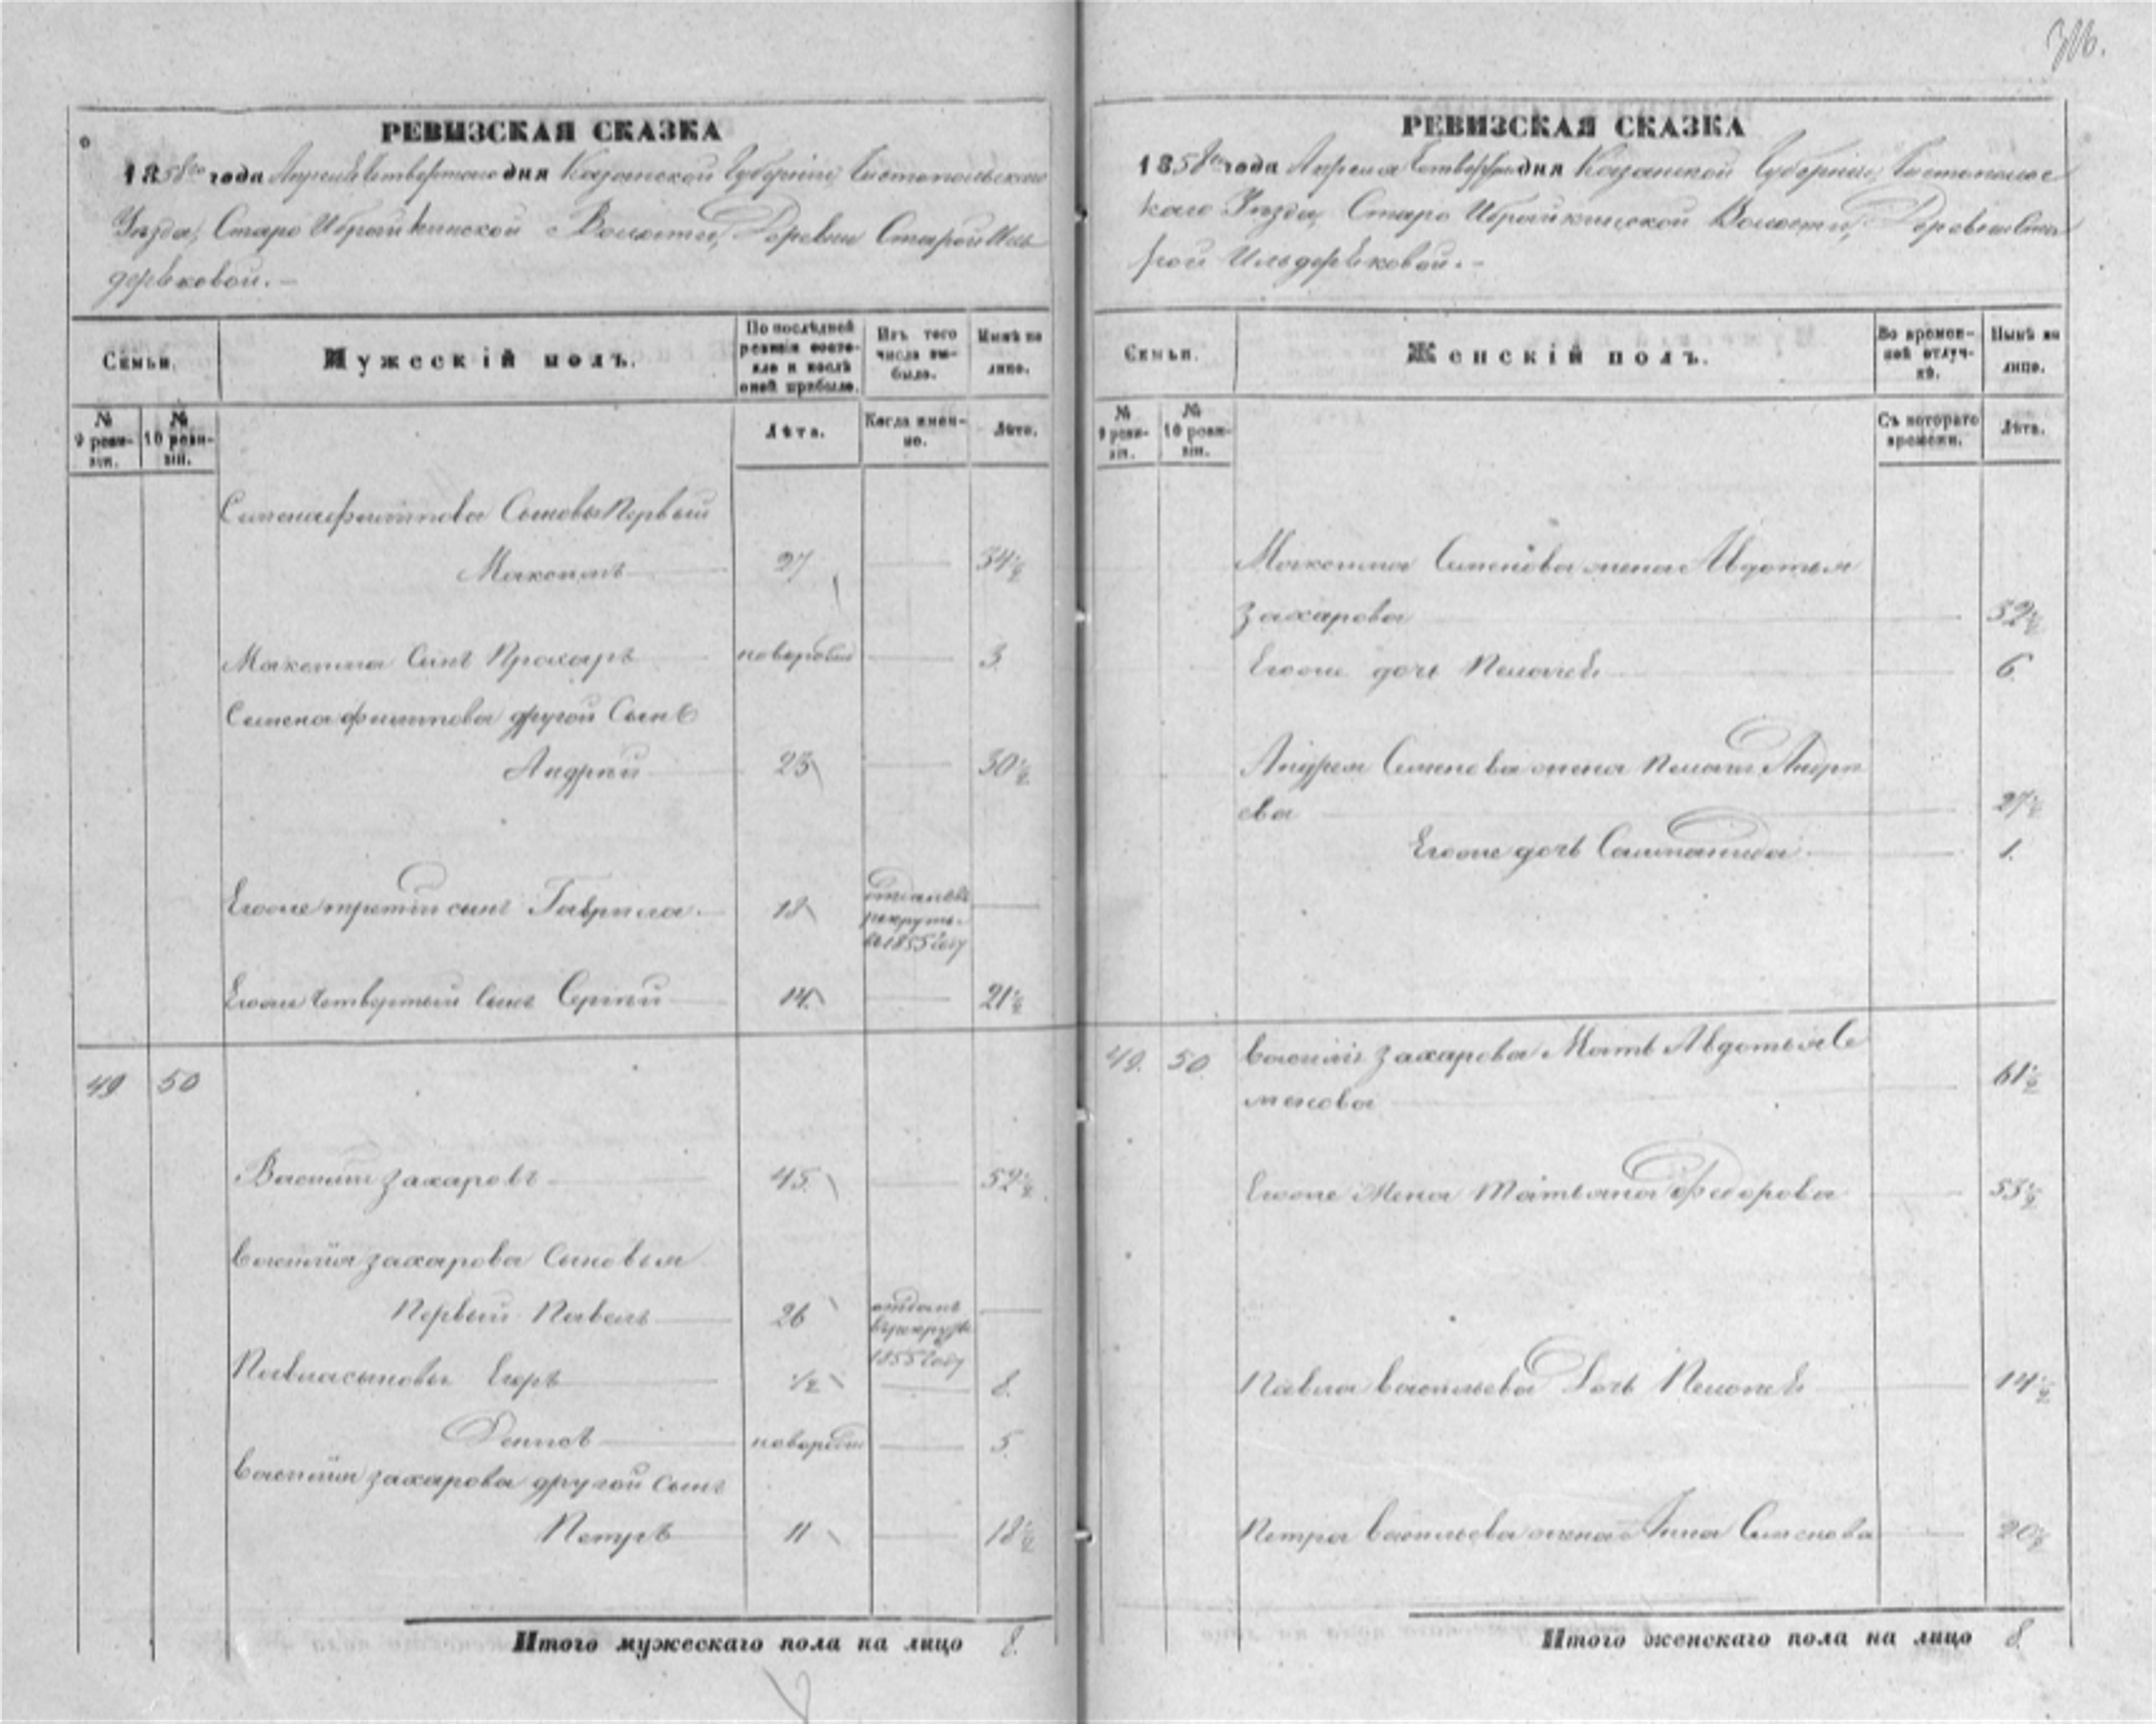 РЕВИЗСКАЯ СКАЗКА
1858го года Апреля Четвертого дня Казанской Губернiи, Чистопольскаго
Уѣзда, Старо Ибрайкинской Волости, Деревни Старой Иль
деряковой.—
Семьи.
Мужескiй полъ.
По послѣдней ревизiи состояло и послѣ оной прибыло.
Изъ того числа выбыло.
Нынѣ на лицо.
№ 9 ревизiи.
№ 10 ревизiи.
Лѣта.
Когда именно.
Лѣта.
Семена Филипова Сыновья Первый
Максимъ 27 34½
Максима Сынъ Прохоръ новорожд 3.
Семена Филипова другой Сынъ
Андрѣй 23 30½
Евоже третiй сынъ Гаврила 18
отданъ въ
рекруты
въ 1855 году
Евоже Четвертый Сынъ Сергѣй 14. 21½
49 50
Василiй Захаровъ 45. 52½
Василiя Захарова Сыновья
Первый Павелъ 26
отданъ
въ рекруты
1855 году
Павла сыновья Егоръ ½ 8.
Денисъ новорожд 5.
Василiя Захарова другой сынъ
Петръ 11 18½
Итого мужескаго пола на лицо 8.
РЕВИЗСКАЯ СКАЗКА
1858го года Апреля Четвертого дня Казанской Губернiи, Чистопольс
каго Уѣзда, Старо Ибрайкинской Волости, Деревни Ста
рой Ильдеряковой.—
Семьи.
Женскiй полъ.
Во временной отлучкѣ.
Нынѣ на лицо.
№ 9 ревизiи.
№ 10 ревизiи.
Съ котораго времени.
Лѣта.
Максима Семенова жена Авдотья
Захарова 32½
Евоже дочь Пелагея 6.
Андрея Семенова жена Пелагея Андрѣ
ева 27½
Евоже дочь 1.
49. 50. Василiя Захарова Мать Авдотья Се
менова 61½
Евоже Жена Татьяна Федорова 53½
Павла Васильева Дочь Пелагея 14½
Петра Васильева жена Анна Семенова 20½
Итого женскаго пола на лицо 8.